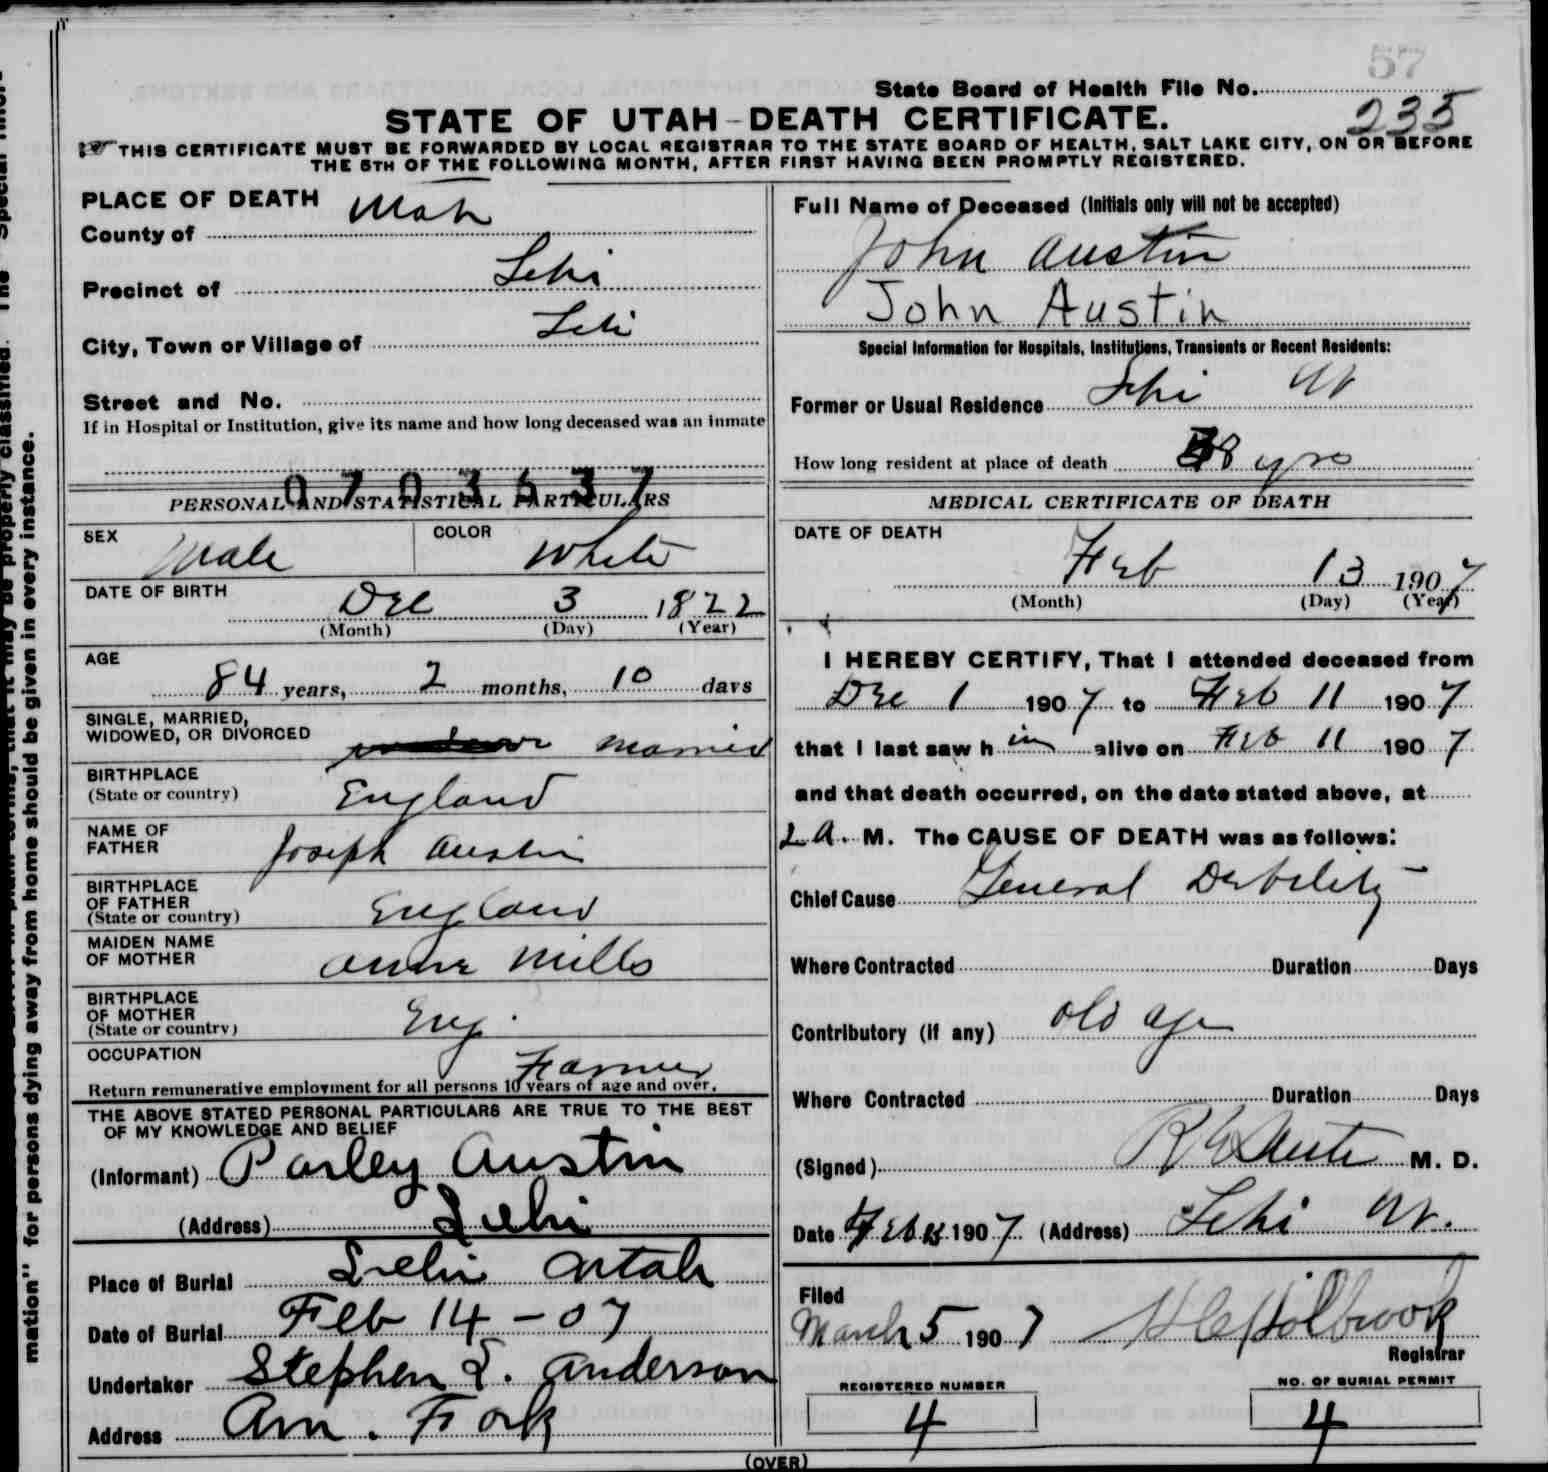 57
State Board of Health File No. 235
STATE OF UTAH-DEATH CERTIFICATE.
THIS CERTIFICATE MUST BE FORWARDED BY LOCAL REGISTRAR TO THE STATE BOARD OF HEALTH, SALT LAKE CITY, ON OR BEFORE
THE 5TH OF THE FOLLOWING MONTH, AFTER FIRST HAVING BEEN PROMPTLY REGISTERED.
PLACE OF DEATH
County of Utah
Precinct of Lehi
City, Town or Village of Lehi
Street and No.
If in Hospital or Institution, give its name and how long deceased was an inmate
0703537
PERSONAL AND STATISTICAL PARTICULARS
SEX Male COLOR White
DATE OF BIRTH Dec 3 1822
(Month) (Day) (Year)
AGE
84 years, 2 months, 10 days
SINGLE, MARRIED,
WIDOWED, OR DIVORCED married
BIRTHPLACE
(State or country) England
NAME OF
FATHER Joseph Austin
BIRTHPLACE
OF FATHER
(State or country) England
MAIDEN NAME
OF MOTHER Anne Mills
BIRTHPLACE
OF MOTHER
(State or country) Eng.
OCCUPATION Farmer
Return remunerative employment for all persons 10 years of age and over.
THE ABOVE STATED PERSONAL PARTICULARS ARE TRUE TO THE BEST
OF MY KNOWLEDGE AND BELIEF
(Informant) Parley Austin
(Address) Lehi
Place of Burial Lehi Utah
Date of Burial Feb 14 - 07
Undertaker Stephen L. Anderson
Address Am. Fork
Full Name of Deceased (Initials only will not be accepted)
John Austin
John Austin
Special Information for Hospitals, Institutions, Transients or Recent Residents:
Former or Usual Residence Lehi Ut
How long resident at place of death 38 yrs
MEDICAL CERTIFICATE OF DEATH
DATE OF DEATH
Feb 13 1907
(Month) (Day) (Year)
I HEREBY CERTIFY, That I attended deceased from
Dec 1 1907 to Feb 11 1907
that I last saw him alive on Feb 11 1907
and that death occurred, on the date stated above, at
2 A. M. The CAUSE OF DEATH was as follows:
Chief Cause General Debility
Where Contracted Duration Days
Contributory (if any) old age
Where Contracted Duration Days
(Signed) M. D.
Date Feb 1907 (Address) Lehi Ut.
Filed
March 5 1907 Holbrook
Registrar
REGISTERED NUMBER
4
NO. OF BURIAL PERMIT
4
(OVER)
mation" for persons dying away from home should be given in every instance.